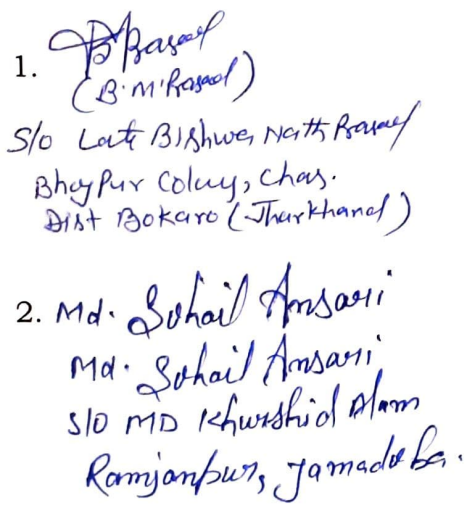 1. B Prasad
(B.M. Prasad)
S/o Late Bishwa Nath Prasad
Bhojpur Colony, Chas.
Dist Bokaro (Jharkhand)
2. Md. Sohail Ansari
Md. Sohail Ansari
S/O MD Khurshid Alam
Ramjanpur, Jamadoba.